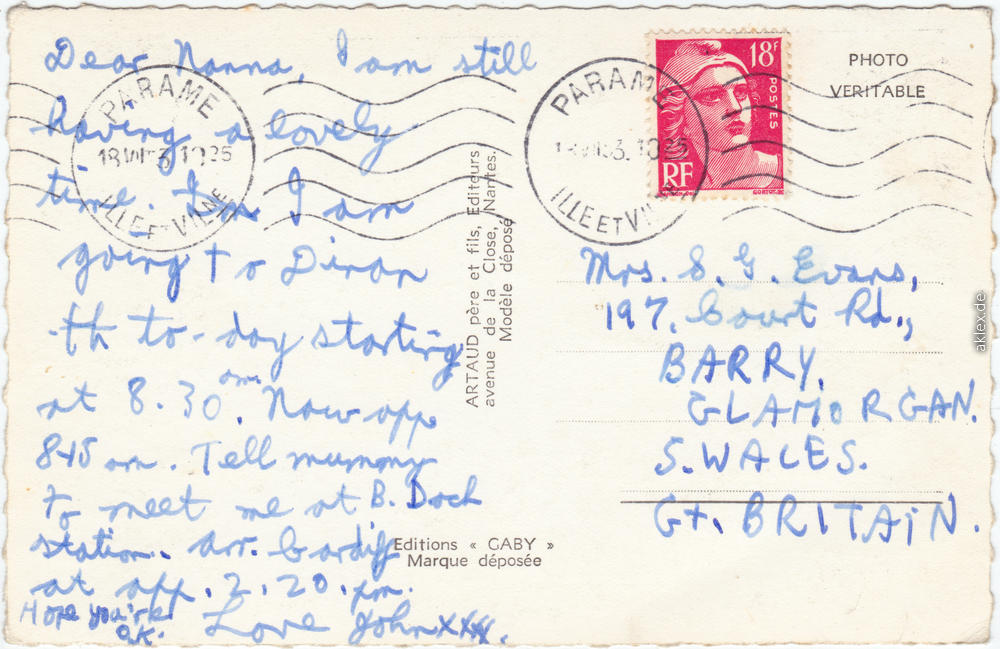 Dear Nanna, I am still
having a lovely
time. I am
going to Dinan
to-day starting
at 8.30 am. Now app
845 am. Tell mummy
to meet me at B. Dock
station. arr. Cardiff
at app. 2.20. pm.
Hope you're
o.k. Love John xxxx.
PARAME
18 VII 53. 1035
ILLE ET VILAINE
ARTAUD père et fils, Editeurs
avenue de la Close, Nantes.
Modèle déposé
Editions « GABY »
Marque déposée
PARAME
ILLE ET VILAINE
18F
POSTES
RF
PHOTO
VERITABLE
Mrs. S. G. Evans,
197. Court Rd.,
BARRY,
GLAMORGAN.
S. WALES.
Gt. BRITAIN.
aklex.de